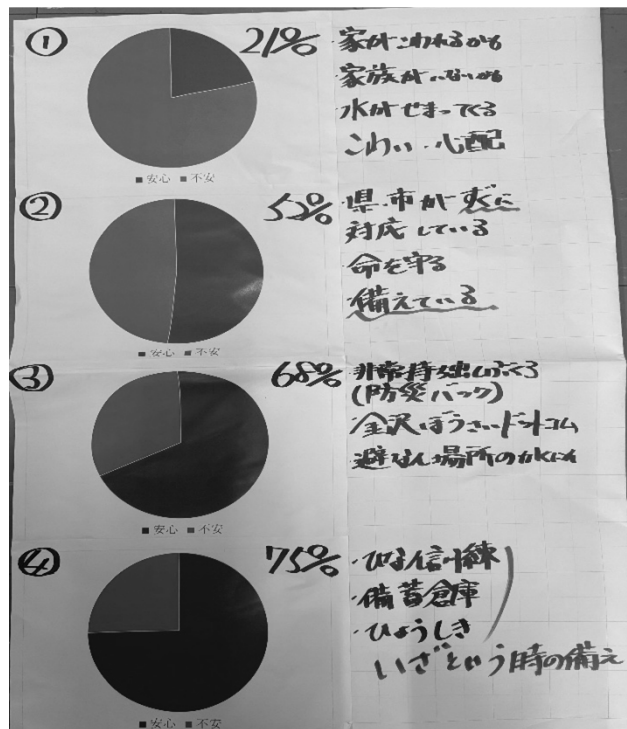 ① 21%
・家がこわれるかも
・家族がいないかも
・水がせまってくる
こわい・心配
■安心 ■不安
② 52%
・県、市がすぐに
対応している
・命を守る
・備えている
■安心 ■不安
③ 68%
・非常持ち出しぶくろ
(防災バック)
・金沢ぼうさいドットコム
・避なん場所のかくにん
■安心 ■不安
④ 75%
・ひなん訓練
・備蓄倉庫
・ひょうしき
いざという時の備え
■安心 ■不安